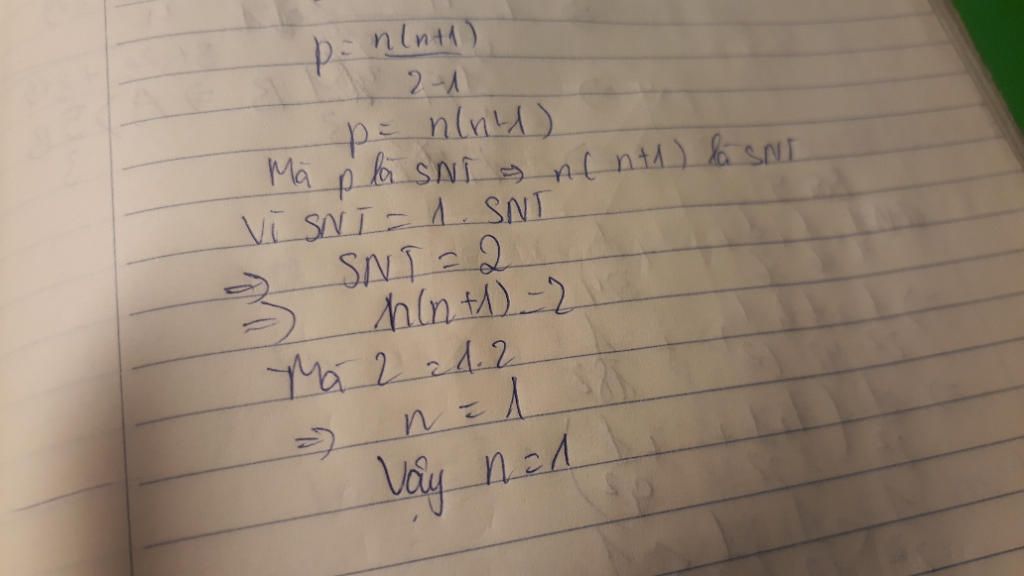 p = n(n+1)
2-1
p = n(n+1)
Mà p là SNT ⇒ n(n+1) là SNT
Vì SNT = 1. SNT
⇒ SNT = 2
⇒ n(n+1) = 2
Mà 2 = 1.2
⇒ n = 1
Vậy n = 1